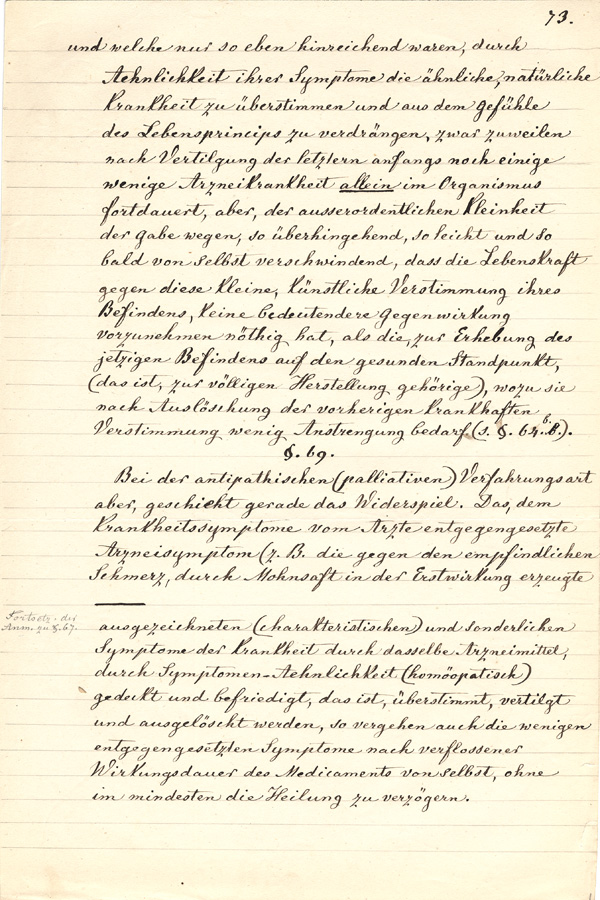 73.
und welche nur so eben hinreichend waren, durch
Aehnlichkeit ihrer Symptome die ähnliche, natürliche
Krankheit zu überstimmen und aus dem Gefühle
des Lebensprincips zu verdrängen, zwar zuweilen
nach Vertilgung der letztern anfangs noch einige
wenige Arzneikrankheit allein im Organismus
fortdauert, aber, der ausserordentlichen Kleinheit
der Gabe wegen, so überhingehend, so leicht und so
bald von selbst verschwindend, dass die Lebenskraft
gegen diese kleine, künstliche Verstimmung ihres
Befindens, keine bedeutendere Gegenwirkung
vorzunehmen nöthig hat, als die, zur Erhebung des
jetzigen Befindens auf den gesunden Standpunkt,
(das ist, zur völligen Herstellung gehörige), wozu sie
nach Auslöschung der vorherigen krankhaften
Verstimmung wenig Anstrengung bedarf (s. §. 64. B.).
§. 69.
Bei der antipathischen (palliativen) Verfahrungsart
aber, geschieht gerade das Widerspiel. Das, dem
Krankheitssymptome vom Arzte entgegengesetzte
Arzneisymptom (z. B. die gegen den empfindlichen
Schmerz, durch Mohnsaft in der Erstwirkung erzeugte
Fortsetz. der
Anm. zu §. 67.
ausgezeichneten (charakteristischen) und sonderlichen
Symptome der Krankheit durch dasselbe Arzneimittel,
durch Symptomen-Aehnlichkeit (homöopatisch)
gedeckt und befriedigt, das ist, überstimmt, vertilgt
und ausgelöscht werden, so vergehen auch die wenigen
entgegengesetzten Symptome nach verflossener
Wirkungsdauer des Medicaments von selbst, ohne
im mindesten die Heilung zu verzögern.